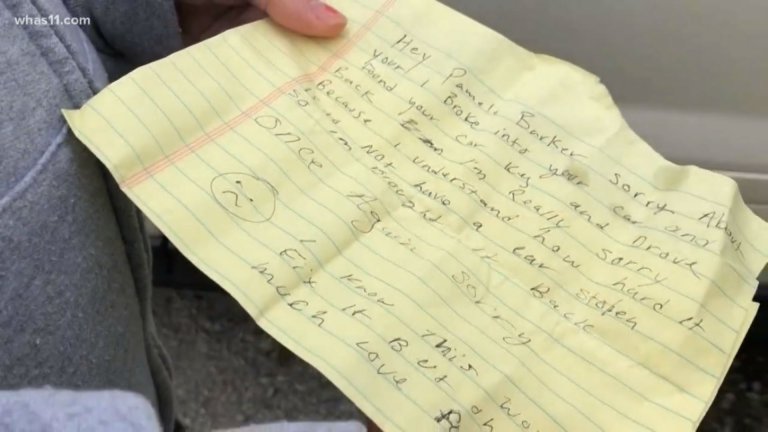 whas11.com
Hey Pamela Barker sorry About
your I Broke into your car and
Found your car key and Drove
Back I'm Really sorry
Because I understand how hard It
Not have a car stolen
So im Brought It Back
Once Again Sorry
I know This wo
Fix It But
much Love